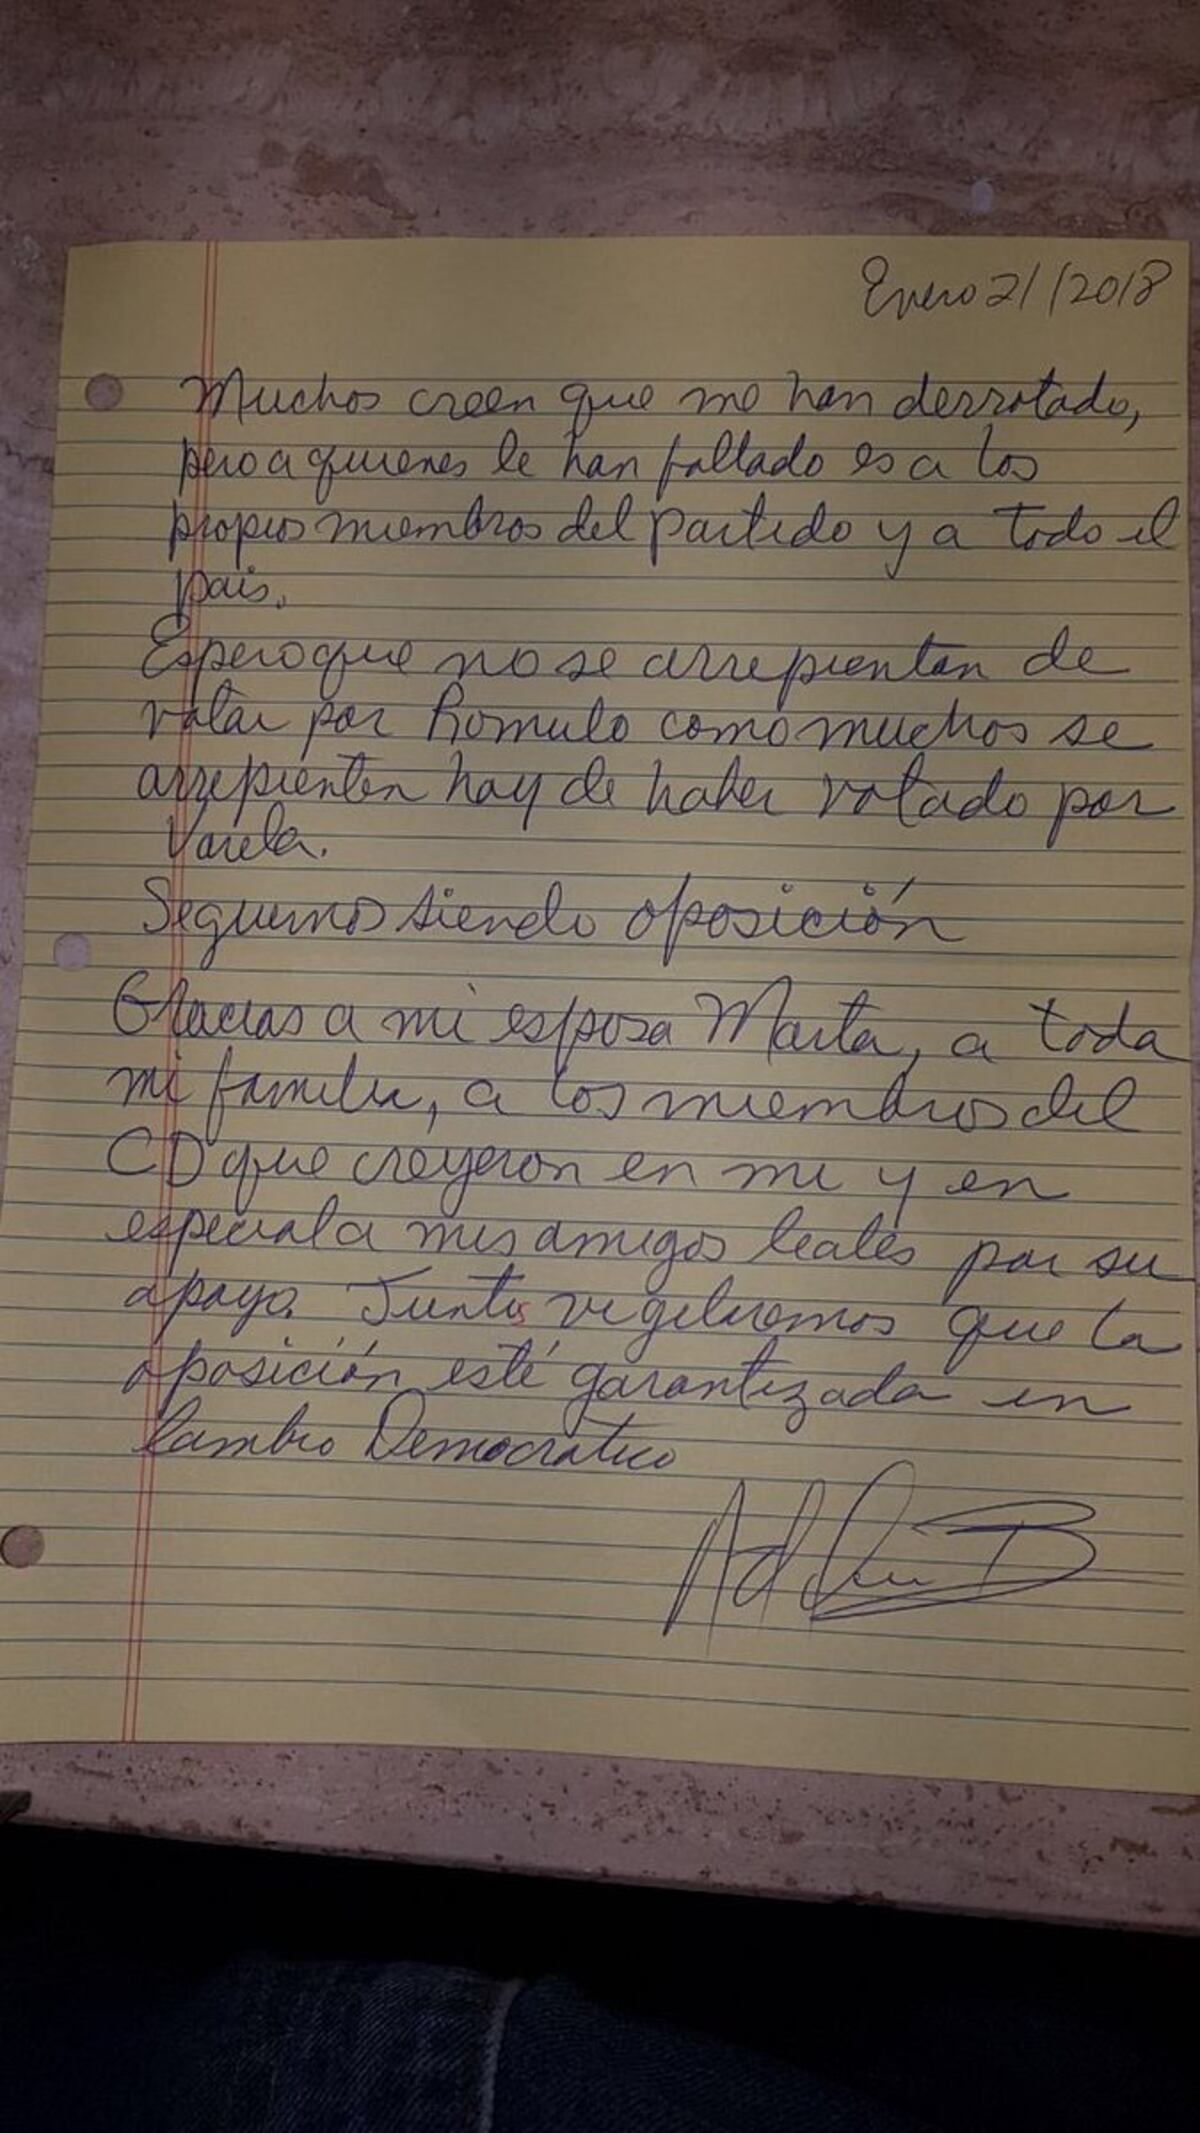 Enero 21/2018
Muchos creen que me han derrotado,
pero a quienes le han fallado es a los
propios miembros del partido y a todo el
pais.
Espero que no se arrepientan de
votar por Romulo como muchos se
arrepienten hoy de haber votado por
Varela.
Seguimos siendo oposición
Gracias a mi esposa Marta, a toda
mi familia, a los miembros del
CD que creyeron en mi y en
especial a mis amigos leales por su
apoyo. Juntos vigilaremos que la
oposición esté garantizada en
Cambio Democratico